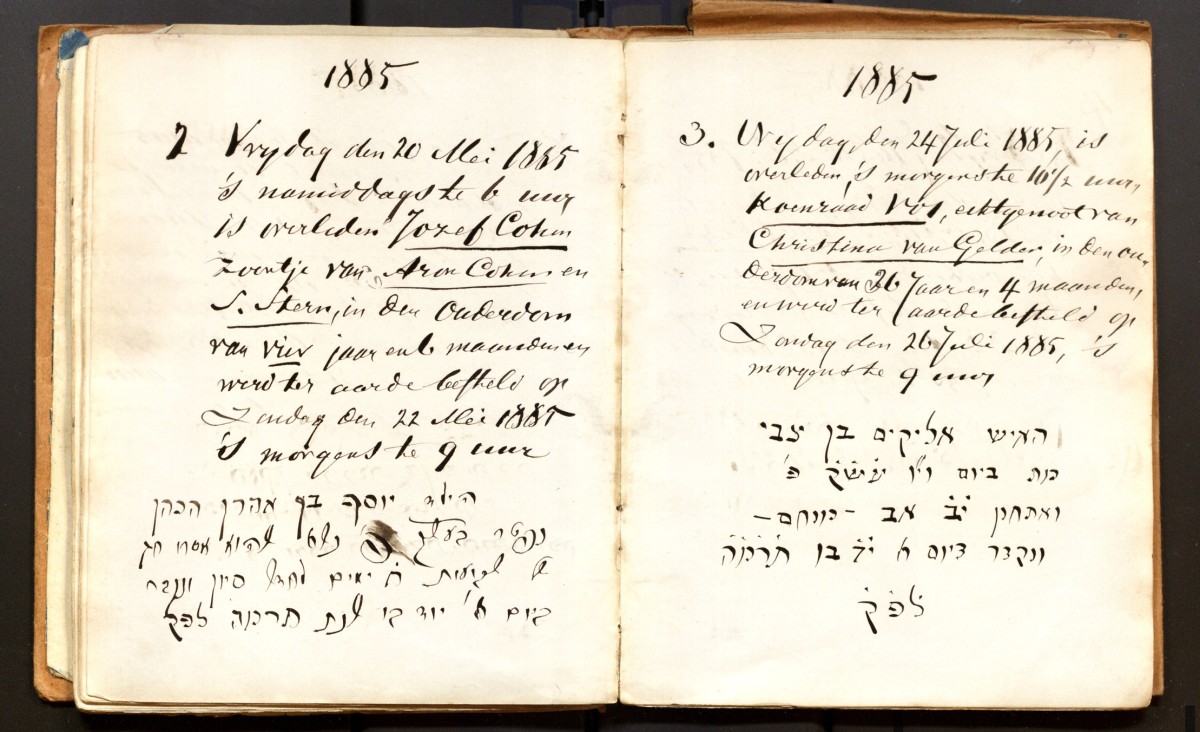 1885
2 Vrydag den 20 Mei 1885
's namiddags te 6 uur
is overleden Jozef Cohen
zoontje van Aron Cohen en
S. Stern, in den Ouderdom
van vier jaar en 6 maanden en
werd ter aarde besteld op
Zondag den 22 Mei 1885
's morgens te 9 uur
הילד יוסף בן אהרן הכהן
נפטר אסרו חג
ימים סיון ונקבר
ביום א' יוד בו שנת תרמה לפק
1885
3. Vrydag, den 24 Juli 1885, is
overleden, 's morgens te 10 1/2 uur,
Koenraad Vos, echtgenoot van
Christina van Gelder, in den ou-
derdom van 36 Jaar en 4 maanden,
en werd ter aarde besteld op
Zondag den 26 Juli 1885, 's
morgens te 9 uur
האיש אליקים בן צבי
מת ביום ויו עש״ק פ'
ואתחנן יב אב -מנחם-
ונקבר ביום א יד בו תרמה
לפק